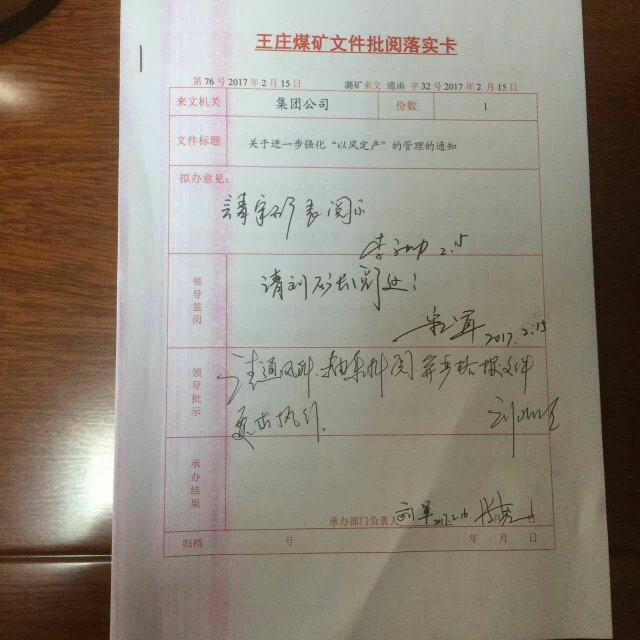 王庄煤矿文件批阅落实卡
第 76 号 2017 年 2 月 15 日 潞矿来文 通函 字 32 号 2017 年 2 月 15 日
来文机关 集团公司 份数 1
文件标题 关于进一步强化“以风定产”的管理的通知
拟办意见：
请宋矿长阅示
2.15
领导签阅
请刘矿长阅处！
2017.2.15
领导批示
请通风科、抽采科阅，并严格按文件
要求执行。
承办结果
承办部门负责人 2017.2.16 月 日
归档 号 年 月 日